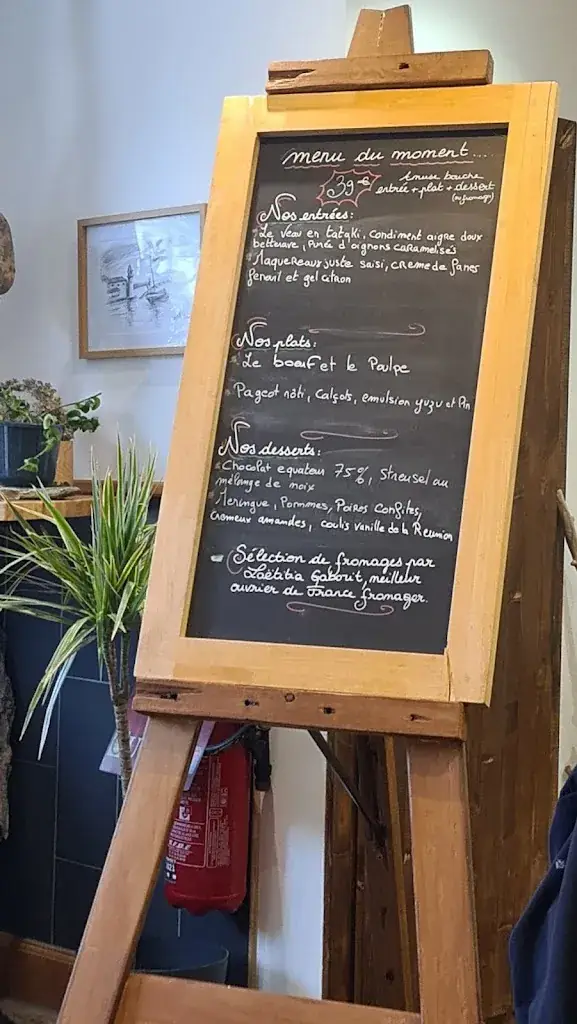 menu du moment....
39€
Amuse bouche
entrée + plat + dessert
(ou fromage)
Nos entrées:
* Le veau en tataki, condiment aigre doux
betterave, Purée d'oignons caramelisés
* Maquereaux juste saisi, creme de fanes
fenouil et gel citron
Nos plats:
* Le boeuf et le Poulpe
* Pageot rôti, Calçots, emulsion yuzu et Pin
Nos desserts:
* Chocolat equateur 75%, Streusel au
mélange de noix
* Meringue, Pommes, Poires Confites,
Crémeux amandes, coulis vanille de la Réunion
Sélection de fromages par
Laëtitia Gaborit, meilleur
ouvrier de France fromager.